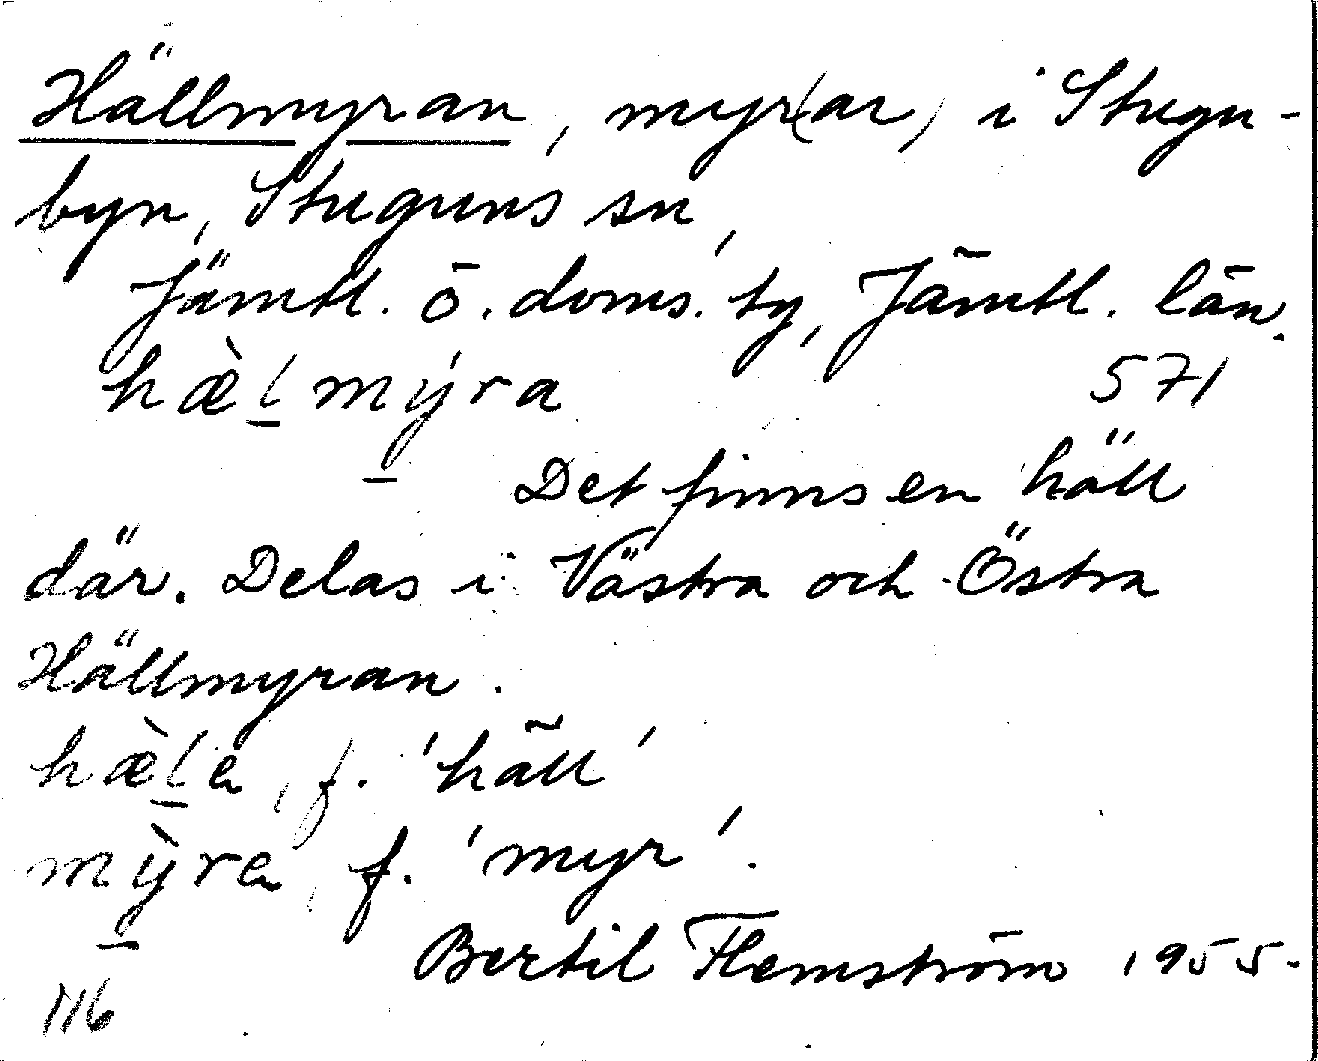 Hällmyran, myr(ar) i Stugu-
byn, Stuguns sn,
Jämtl. ö. doms. ty, Jämtl. län.
hæ̀l̲mẏ́ra 571
Det finns en häll
där. Delas i Västra och Östra
Hällmyran.
hæ̀l̲a, f. 'häll'
mỳ̲ra, f. 'myr'.
Bertil Flemström 1955.
116